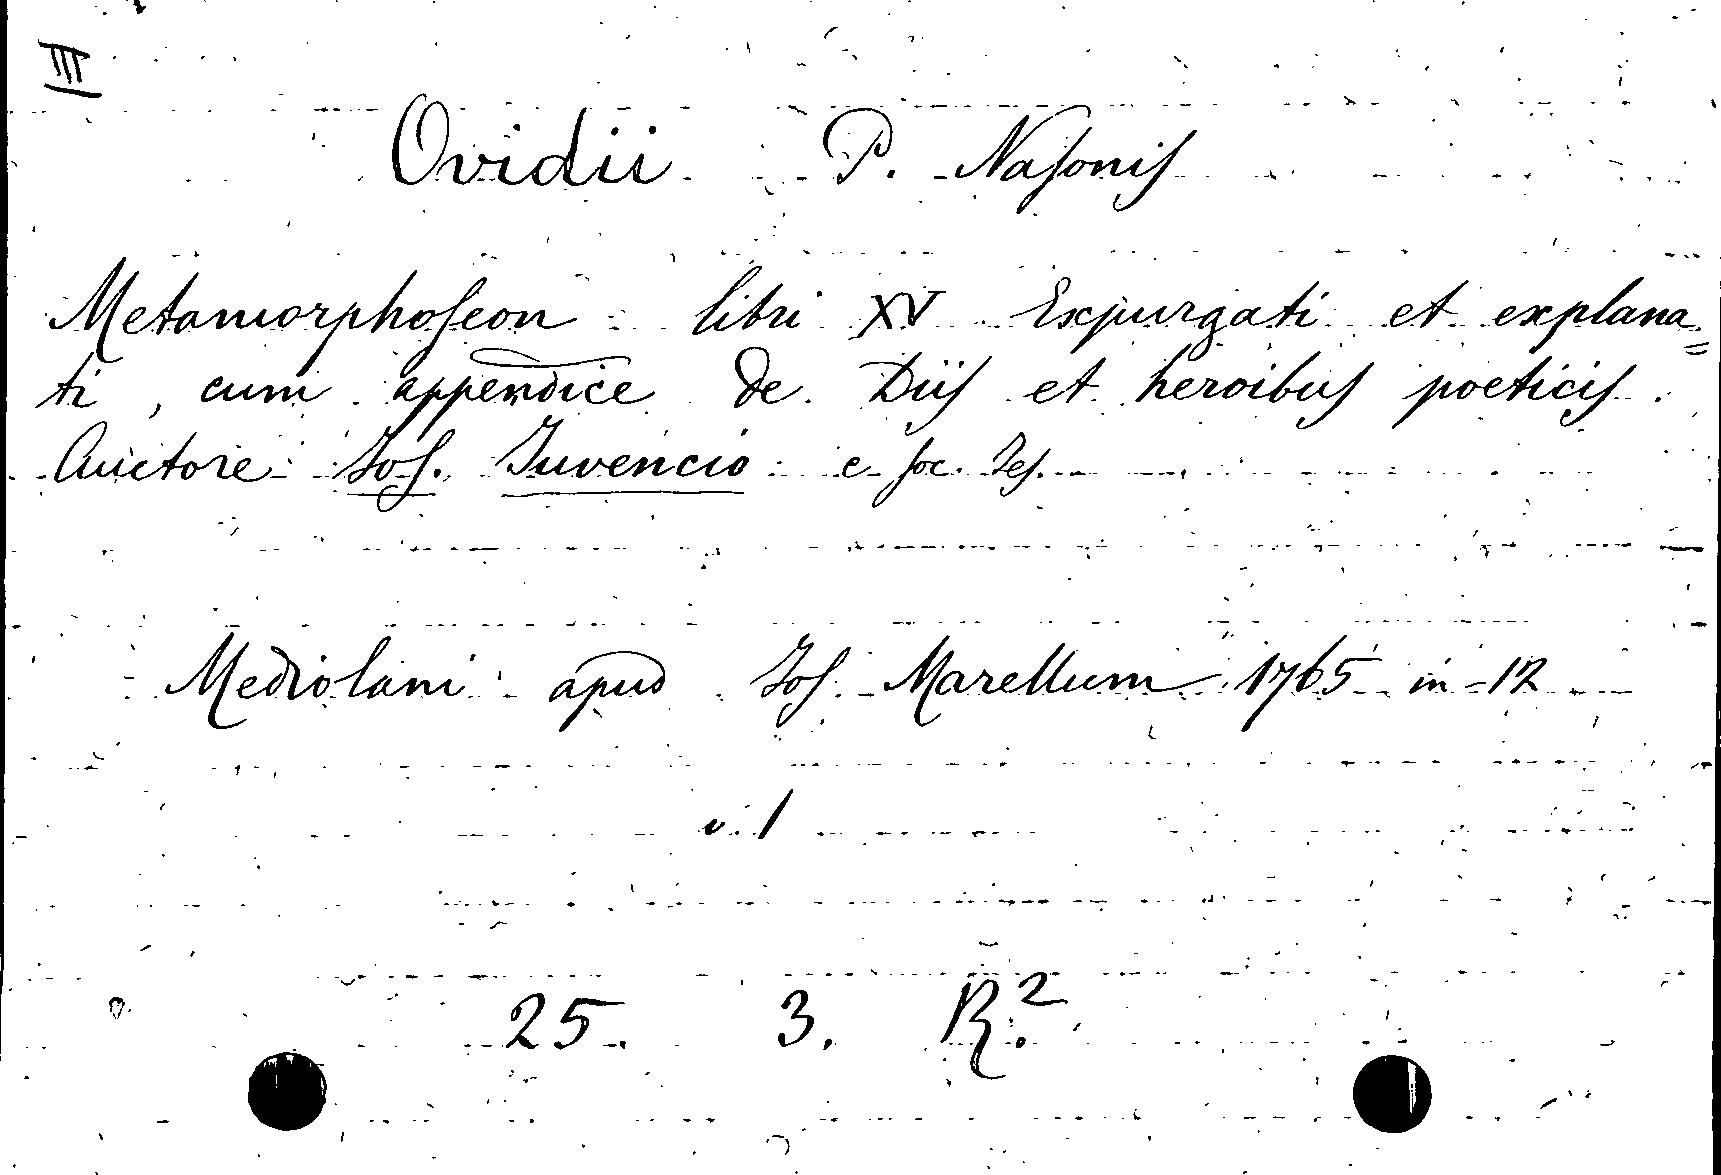 III
Ovidii P. Nasonis
Metamorphoseon libri XV Expurgati et explana=
ti, cum appendice de Diis et heroibus poeticis.
Auctore Jos. Juvencio e soc. Jes.
Mediolani apud Jos. Marellum 1765 in-12
v. 1
25. 3. R.²